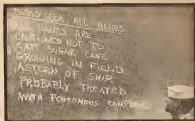 ALL HANDS
ALL HANDS ARE
CAUTIONED NOT TO
EAT SUGAR CANE
GROWING IN FIELD
ASTERN OF SHIP
PROBABLY TREATED
WITH POISONOUS COMPOUND